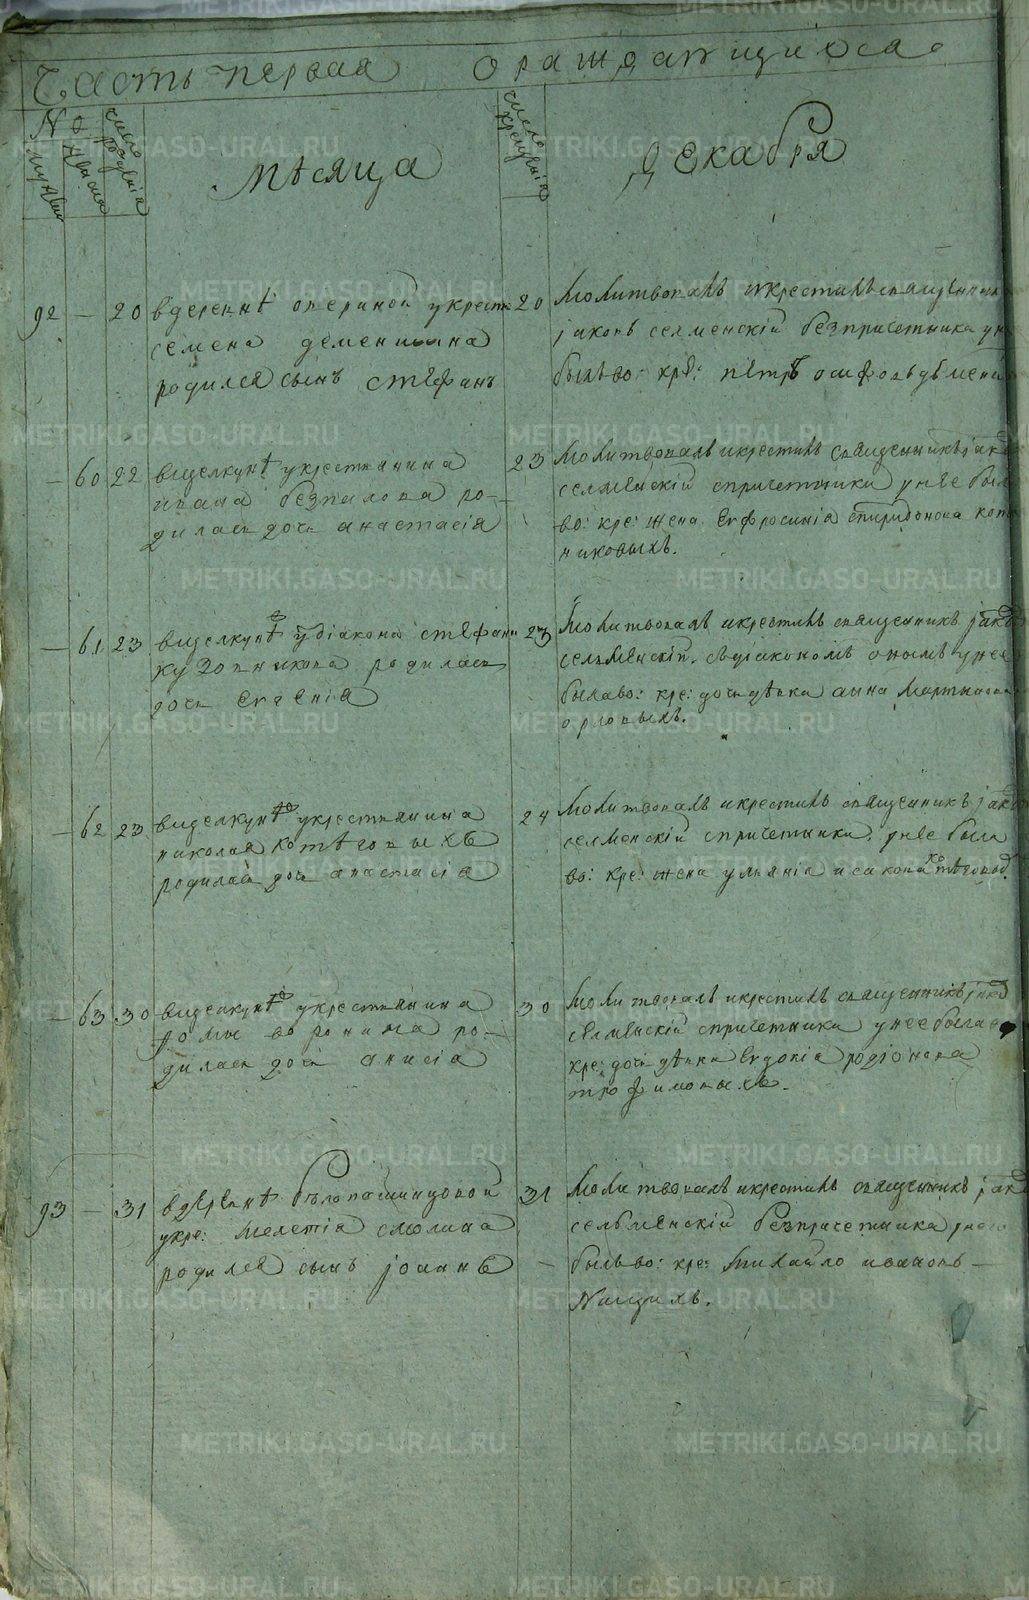 Часть первая о раждающихся
№
мужеска
женска
число рождения
месяца
число крещения
декабря
92 — 20 в деревне опериной у крестья
семена деменшина
родился сынъ стефанъ
20 Молитвовалъ и крестилъ священникъ
іаковъ селменскій без причетника у н
былъ во: кре: петръ
— 60 22 в щелкунѣ у крестьянина
ивана безпалова ро-
дилась дочь анастасія
23 Молитвовалъ и крестилъ священникъ іако
селменскій с причетники у нее был
во: кре: жена ефросинія спиридонова
никовыхъ.
— 61 23 в щелкунѣ у діакона стефана
кузовникова родилась
дочь евгенія
23 Молитвовалъ и крестилъ священникъ іако
селменскій. съ діакономъ онымъ у нее
была во: кре: дочь девка анна Мартынова
орловыхъ.
— 62 23 в щелкунѣ у крестьянина
николая котеговыхъ
родилась дочь анастасіа
24 Молитвовалъ и крестилъ священникъ іако
селменскій с причетники у нее была
во: кре: жена уліанія исакова котегов
— 63 30 в щелкунѣ у крестьянина
фомы воронина ро-
дилась дочь анисіа
30 Молитвовалъ и крестилъ священникъ іако
селменскій с причетники у нее была в
кре: дочь девка евдокіа родіонова
трофимовыхъ.
93 — 31 в деревне белопашинцовой
у кре: Мелетіа смолина
родился сынъ іоаннъ
31 Молитвовалъ и крестилъ священникъ іако
селменскій без причетника у него
былъ во: кре: Михайло ивановъ —
METRIKI.GASO-URAL.RU